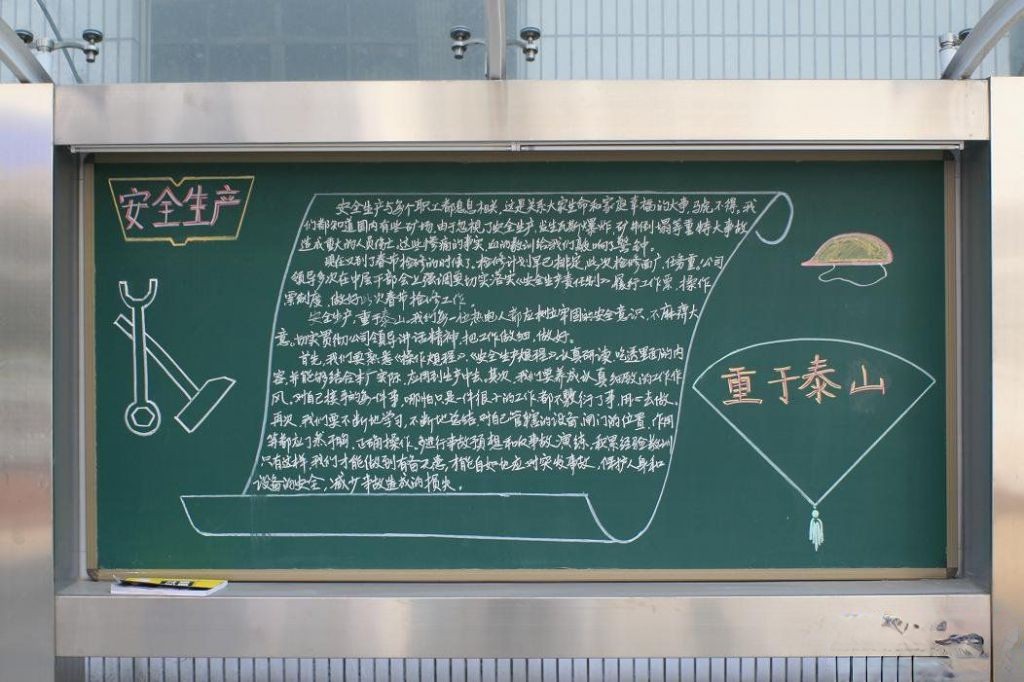 安全生产
安全生产与每个职工都息息相关,这是关系大家生命和家庭幸福的大事,马虎不得。我
们都知道国内有些矿物,由于忽视了安全生产,发生瓦斯爆炸,矿井倒塌等重特大事故
造成重大的人员伤亡,这些惨痛的事实,血的教训给我们敲响了警钟。
现在又到了春节检修的时候了。检修计划早已排定,此次检修面广,任务重。公司
领导多次在中层干部会上强调要切实落实《安全生产责任制》履行工作票,操作
票制度,做好此次春节检修工作。
安全生产,重于泰山,我们每一位热电人都应树立牢固的安全意识,不麻痹大
意。切实贯彻公司领导讲话精神,把工作做细,做好。
首先,我们要熟悉《操作规程》,《安全生产规程》认真研读,吃透里面的内
容,并能够结合本厂实际,应用到生产中去。其次,我们要养成认真细致的工作作
风,对自己接手的每件事,哪怕只是一件很小的工作都不敷衍了事,用心去做。
再次,我们要不断地学习,不断地总结,对自己管辖的设备,阀门的位置,作用
等都应了然于胸,正确操作,多进行事故预想和反事故演练,积累经验教训
只有这样,我们才能做到有备无患,才能自如地应对突发事故,保护人身和
设备的安全,减少事故造成的损失。
重于泰山